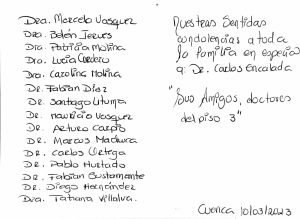 Dra. Marcelo Vasquez
Dra. Belén Jerves
Dra. Patricia Molina
Dra. Lucia Cordero
Dra. Carolina Molina
Dr. Fabian Diaz
Dr. Santiago Lituma
Dr. Mauricio Vasquez
Dr. Arturo Carpio
Dr. Marcos Maduea
Dr. Carlos Ortega
Dr. Pablo Hurtado
Dr. Fabian Bustamante
Dr. Diego Hernández
Dra. Tatiana Villalva.
Nuestras Sentidas
condolencias a toda
la familia en especia
a: Dr. Carlos Encalada
"Sus Amigos, doctores
del piso 3"
Cuenca 10/03/2023